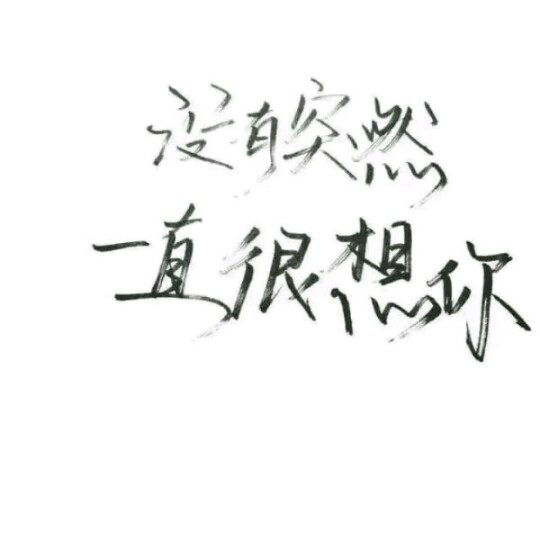 没有突然
一直很想你